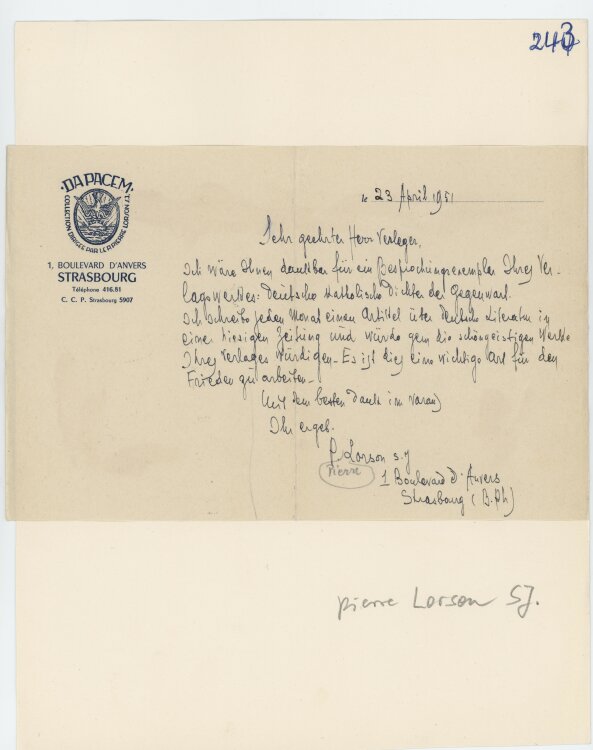 243
·DA PACEM·
COLLECTION DIRIGÉE PAR LE R.P. PIERRE LORSON S.J.
1, BOULEVARD D'ANVERS
STRASBOURG
Téléphone 416.81
C. C. P. Strasbourg 5907
le 23 April 1951
Sehr geehrter Herr Verleger,
Ich wäre Ihnen dankbar für ein Besprechungsexemplar Ihres Ver-
lagswerkes: Deutsche Katholische Dichter der Gegenwart.
Ich schreibe jeden Monat einen Artikel über deutsche Literatur in
einer hiesigen Zeitung und würde gern die schöngeistigen Werke
Ihres Verlages würdigen. Es ist dies eine wichtige Art für den
Frieden zu arbeiten.
Mit dem besten Dank im Voraus
Ihr ergeb.
P. Lorson s.j
Pierre
1 Boulevard d'Anvers
Strasbourg (B. Rh)
pierre Lorson SJ.